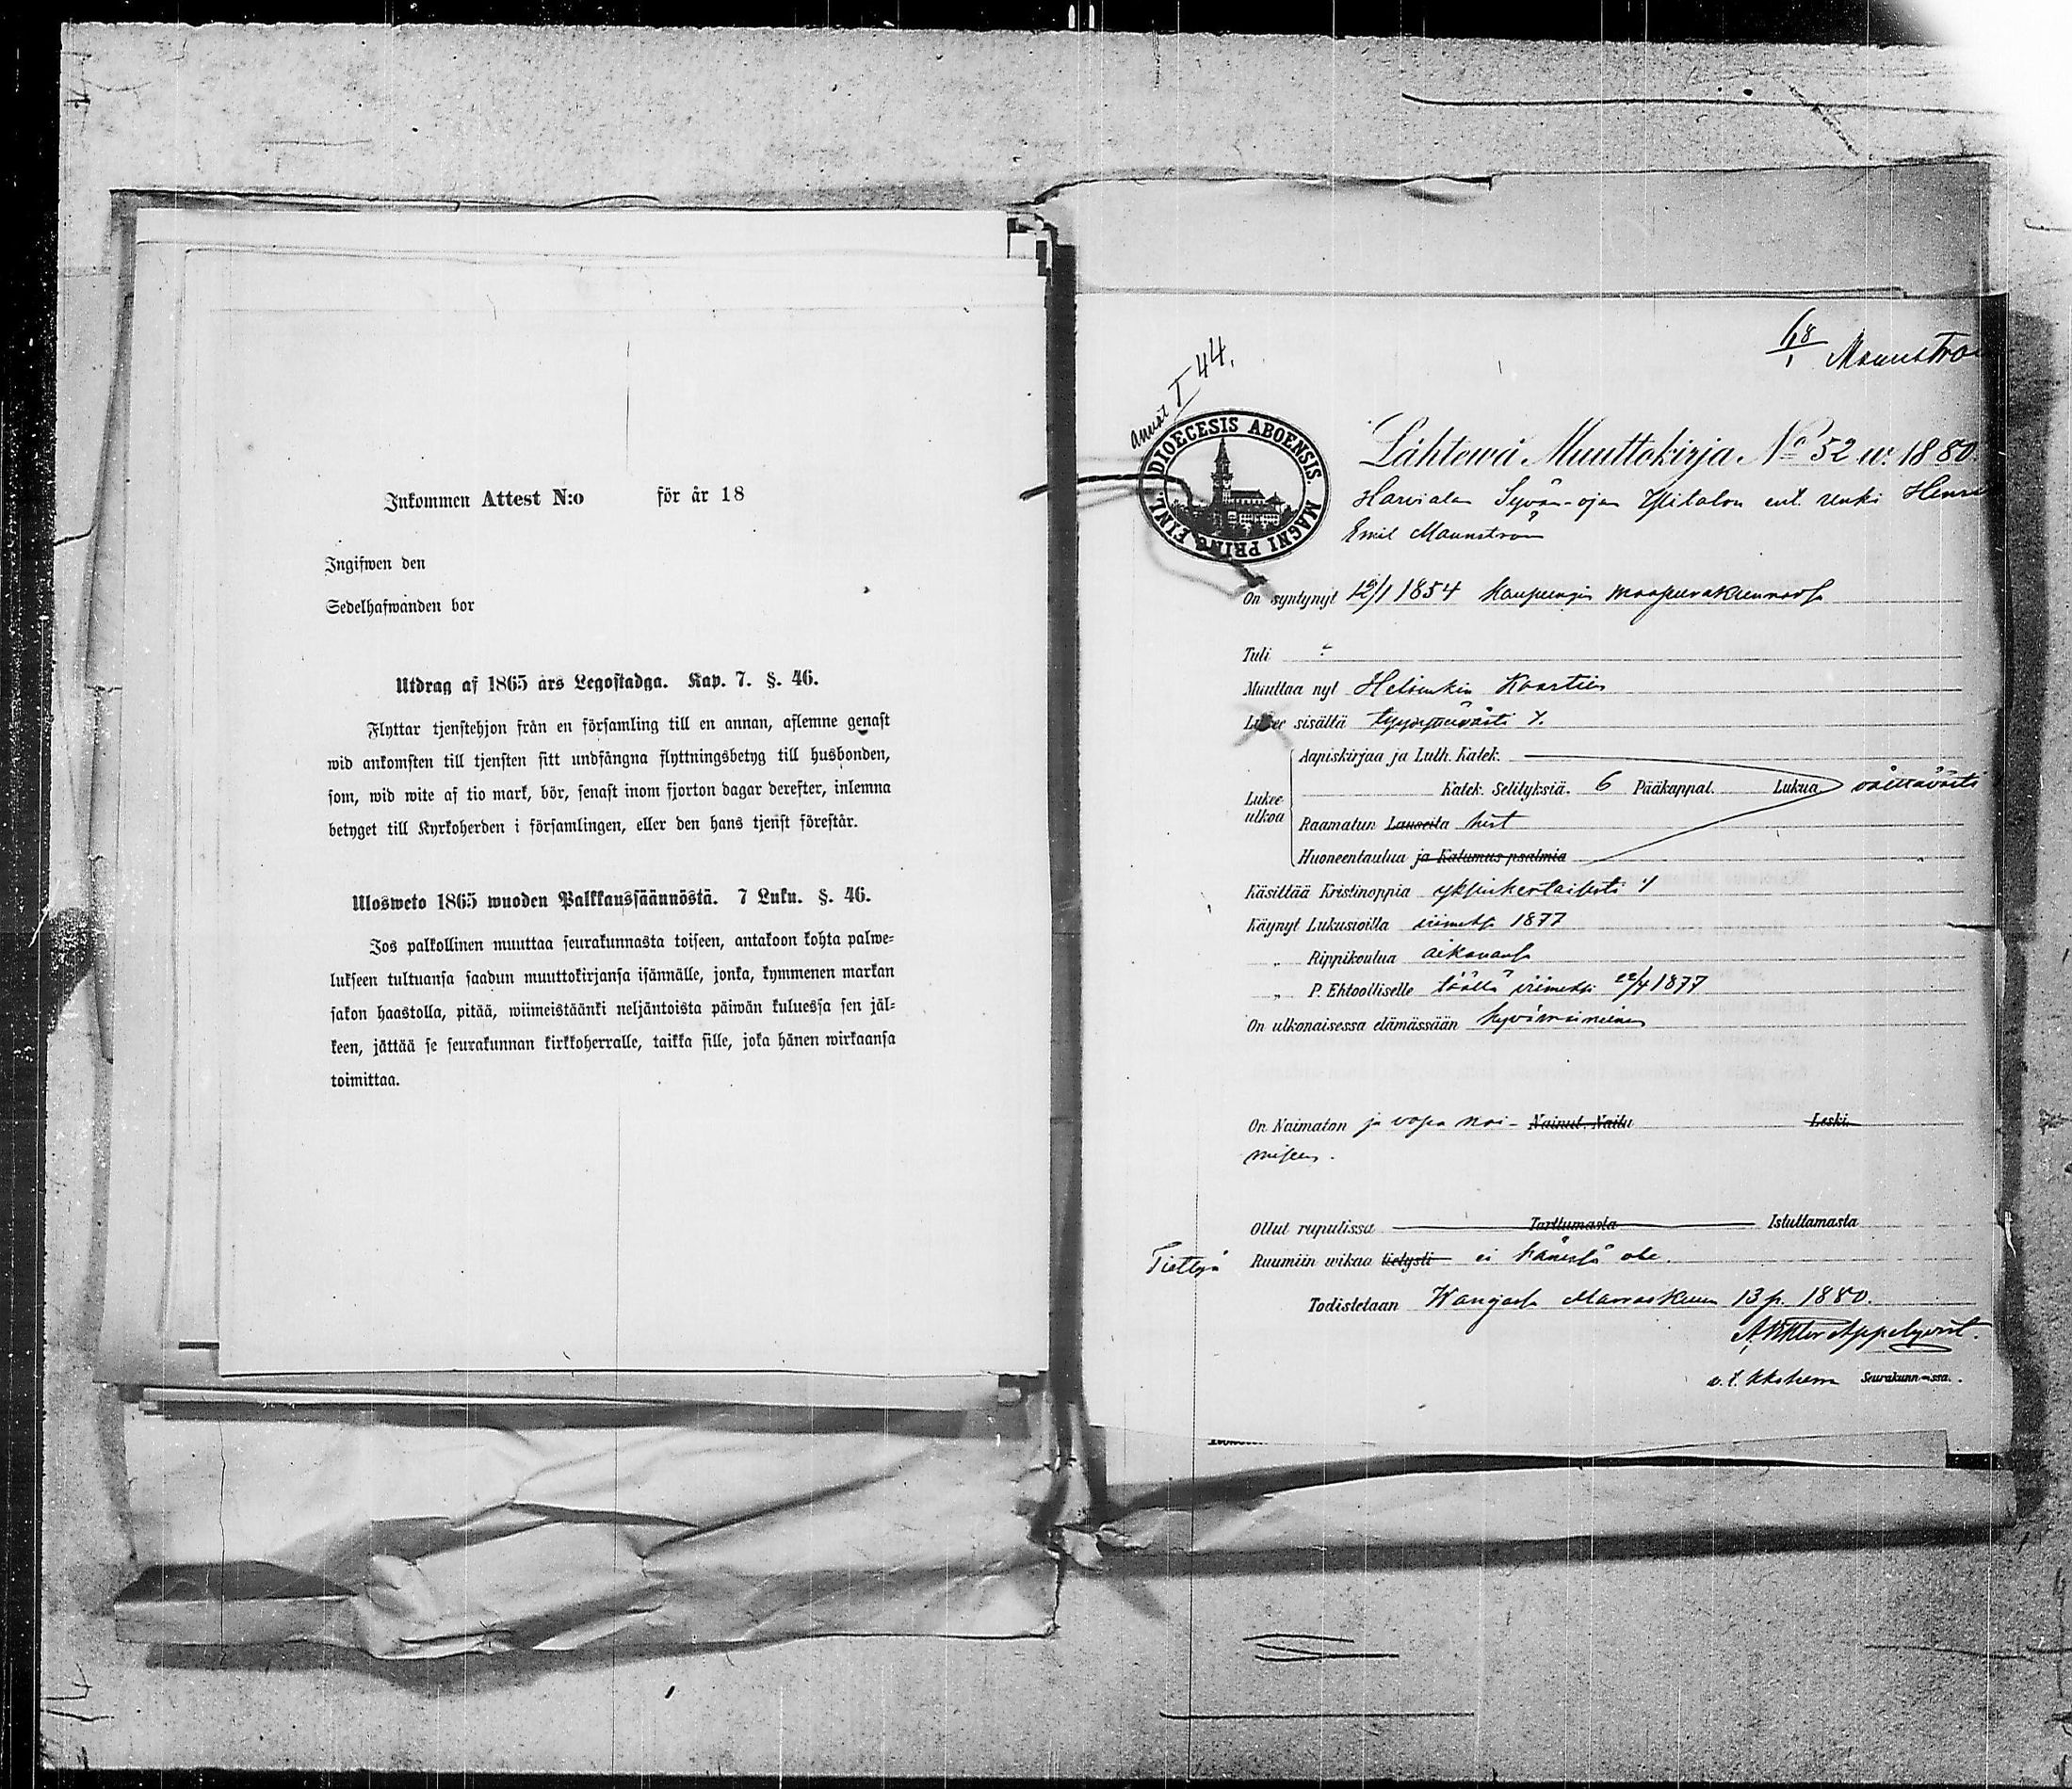 Inkommen Attest N:o för år 18
Ingifwen den
Sedelhafwanden bor
Utdrag af 1865 års Legostadga. Kap. 7. §. 46.
Flyttar tjenstehjon från en församling till en annan, aflemne genast
wid ankomsten till tjensten sitt undfångna flyttningsbetyg till husbonden,
som, wid wite af tio mark, bör, senast inom fjorton dagar derefter, inlemna
betyget till Kyrkoherden i församlingen, eller den hans tjenst förestår.
Ulosweto 1865 wuoden Palkkaussäännöstä. 7 Luku. §. 46.
Jos palkollinen muuttaa seurakunnasta toiseen, antakoon kohta palwe-
lukseen tultuansa saadun muuttokirjansa isännälle, jonka, kymmenen markan
sakon haastolla, pitää, wiimeistäänki neljäntoista päiwän kuluessa sen jäl-
keen, jättää se seurakunnan kirkkoherralle, taikka sille, joka hänen wirkaansa
toimittaa.
I 44.
DIOECESIS ABOENSIS. MAGNI PRINC. FINL.
Lähtewä Muuttokirja No 52 w. 1880.
Harvialan Syvän-ojan Ylitalon ent. renki
Emil Maunström
On syntynyt 12/1 1854 kaupungin maaseurakunnassa
Tuli
Muuttaa nyt Helsinkin Kaartiin
Lukee sisältä tyydyttävästi
Aapiskirjaa ja Luth. Katek.
Lukee ulkoa
Katek. Selityksiä. 6 Pääkappal. Lukua välttävästi
Raamatun Lauseita hist
Huoneentaulua ja Katumus-psalmia
Käsittää Kristinoppia yksinkertaisesti
Käynyt Lukusioilla viimeksi 1877
„ Rippikoulua aikanansa
„ P. Ehtoolliselle täällä viimeksi 22/4 1877
On ulkonaisessa elämässään hyvämaineinen
On Naimaton ja vapa nai- Nainut, Naitu Leski
miseen.
Ollut rupulissa Tarttumasta Istuttamasta
Tiettyä Ruumiin wikaa tietysti ei hänessä ole.
Todistetaan Wanajassa Marraskuun 13 p. 1880.
Appelqvist.
v. t. Seurakunnassa.